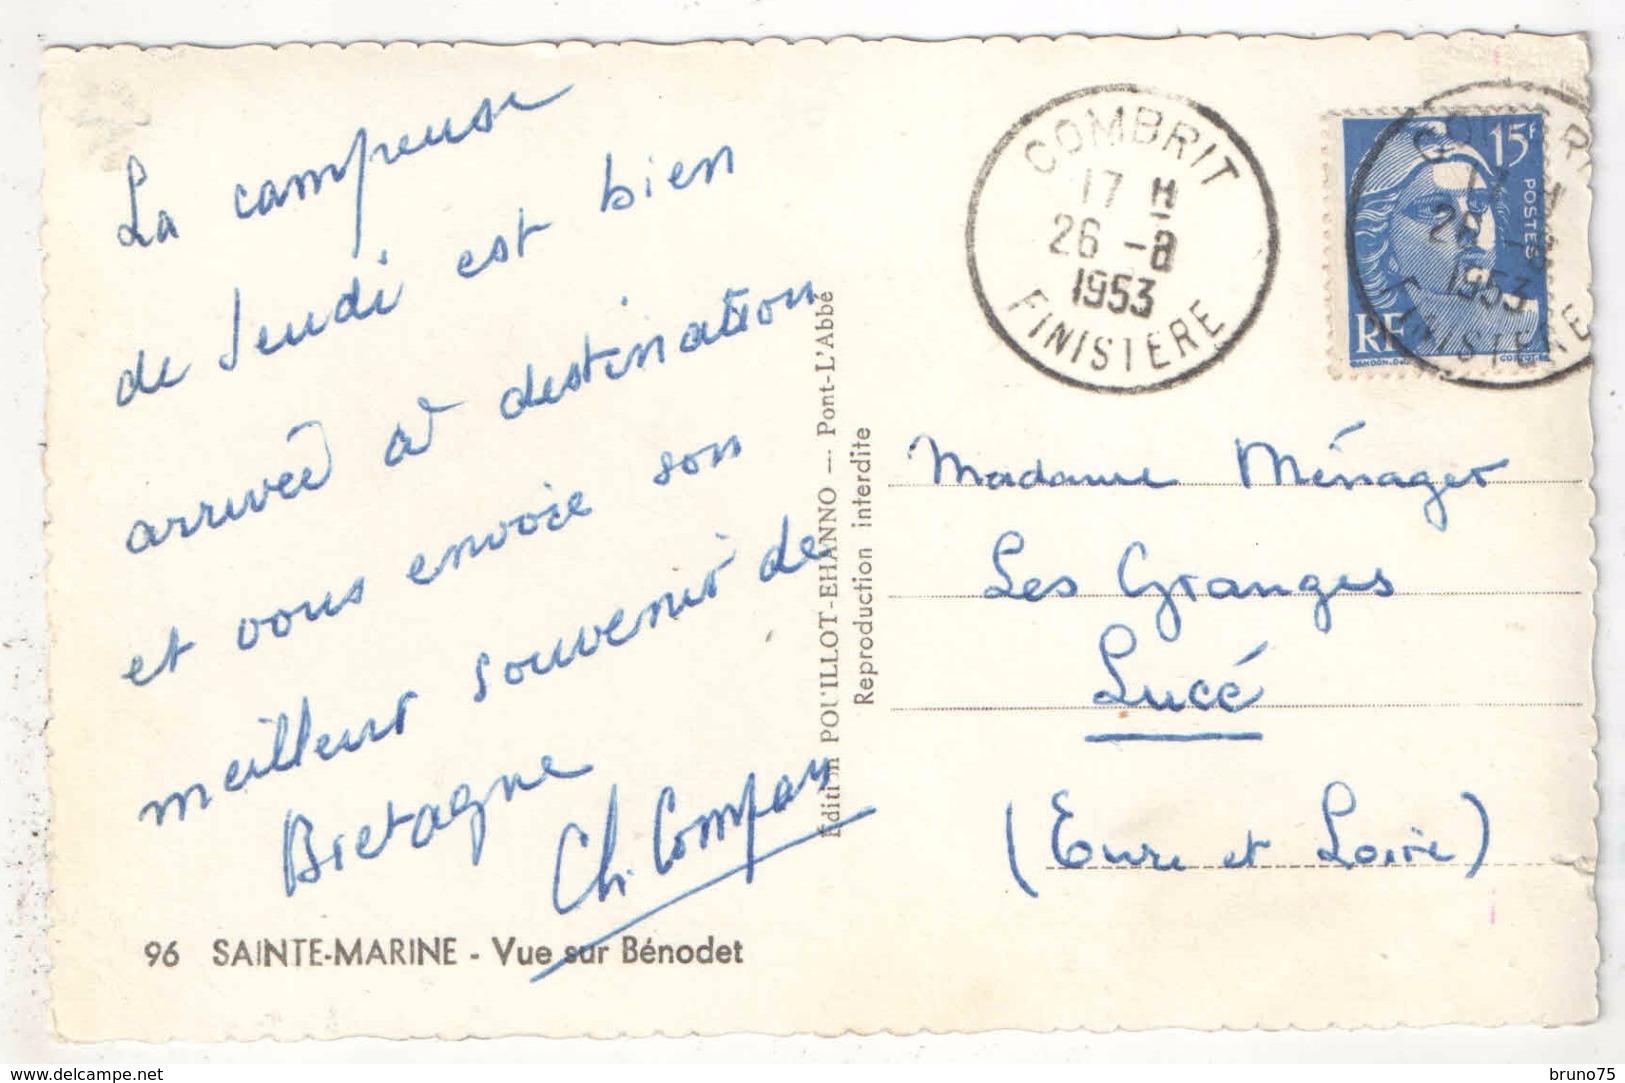 La campeuse
de Jeudi est bien
arrivée à destination
et vous envoie son
meilleur souvenir de
Bretagne
96 SAINTE-MARINE - Vue sur Bénodet
Édition POUILLOT-EHANNO — Pont-L'Abbé
Reproduction interdite
COMBRIT
17 H
26 -8
1953
FINISTÈRE
15F
POSTES
RF
17 H
1953
FINISTÈRE
Madame Ménager
Les Granges
Lucé
(Eure et Loire)
www.delcampe.net
bruno75